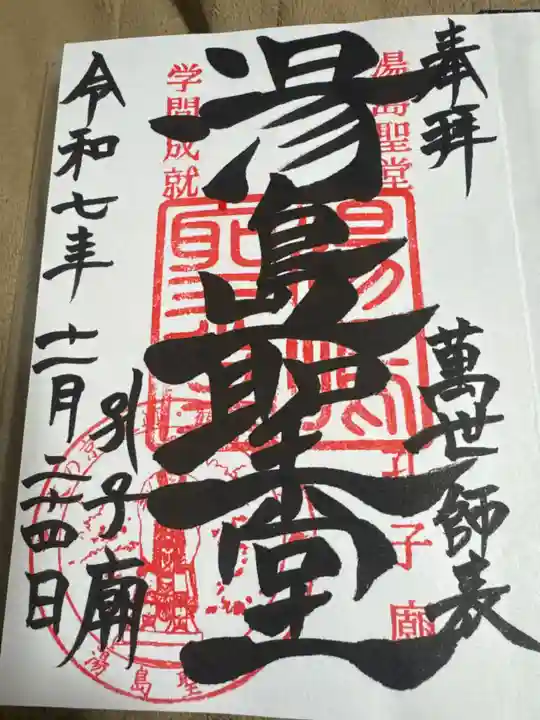 奉拝
萬世師表
湯島聖堂
孔子廟
湯島聖堂
学問成就
孔子廟
令和七年十一月二十四日
湯島聖